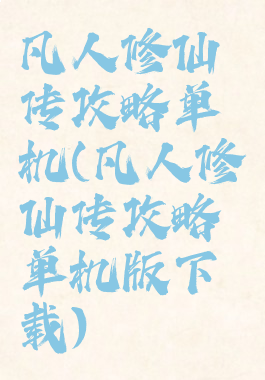 凡人修仙
传攻略单
机(凡人修
仙传攻略
单机版下
载)